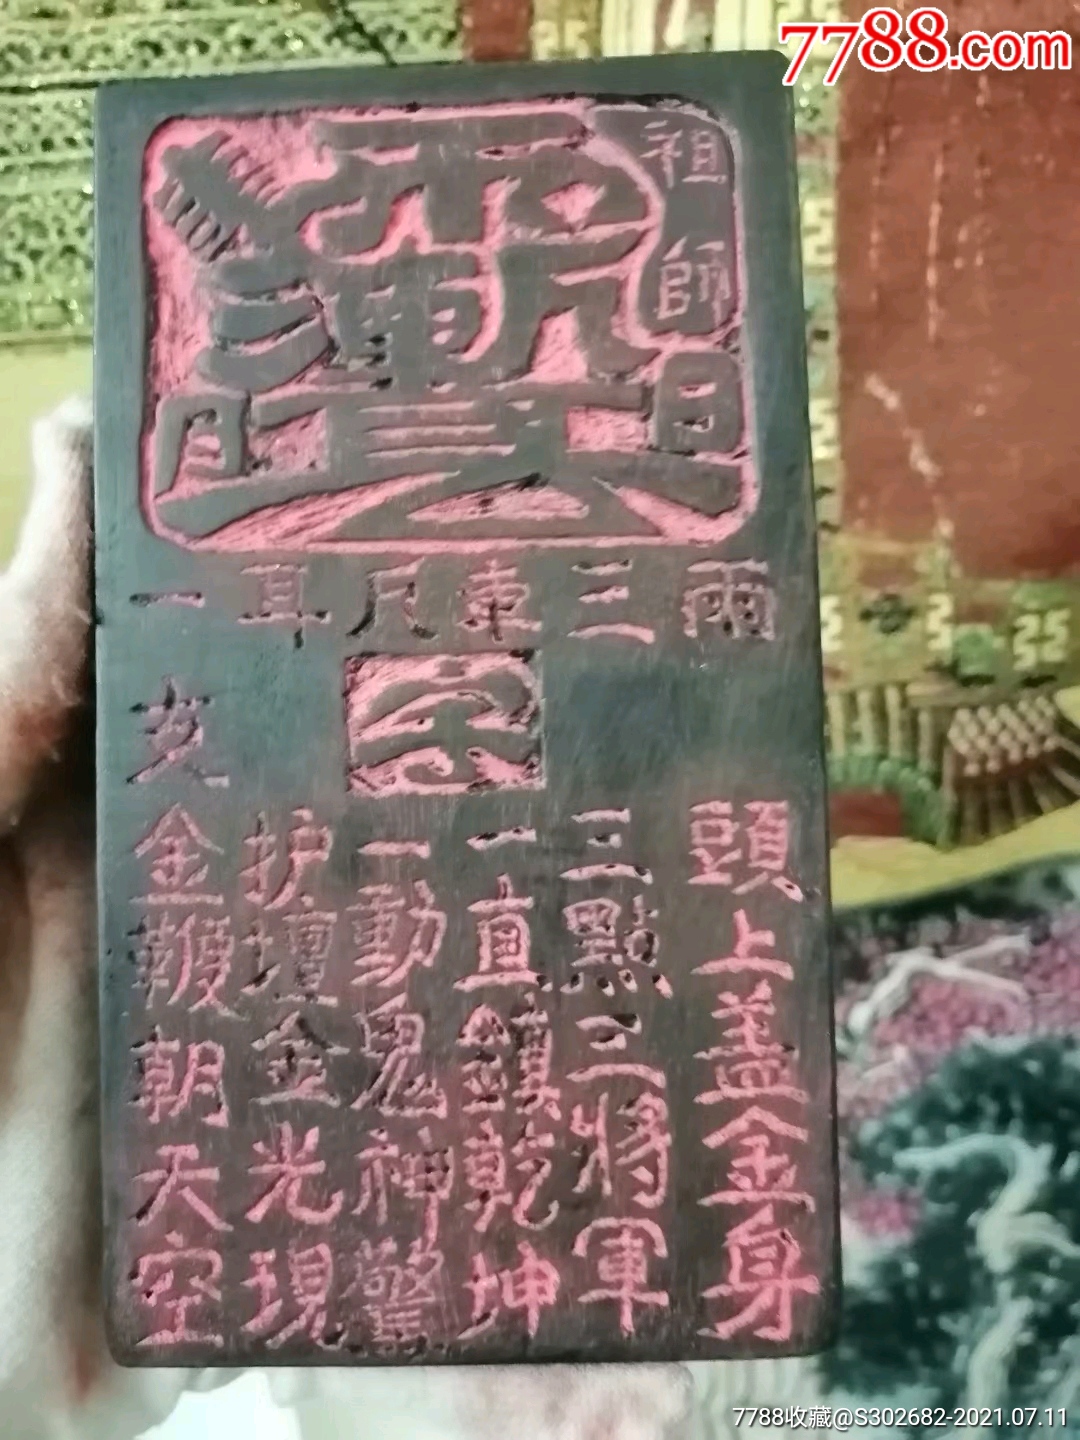 7788.com
祖師
日
月
雨三東尺耳一
頭上盖金身
三點三將軍
一直鎮乾坤
一動鬼神驚
护壇金光現
金鞭朝天空
7788收藏@S302682-2021.07.11